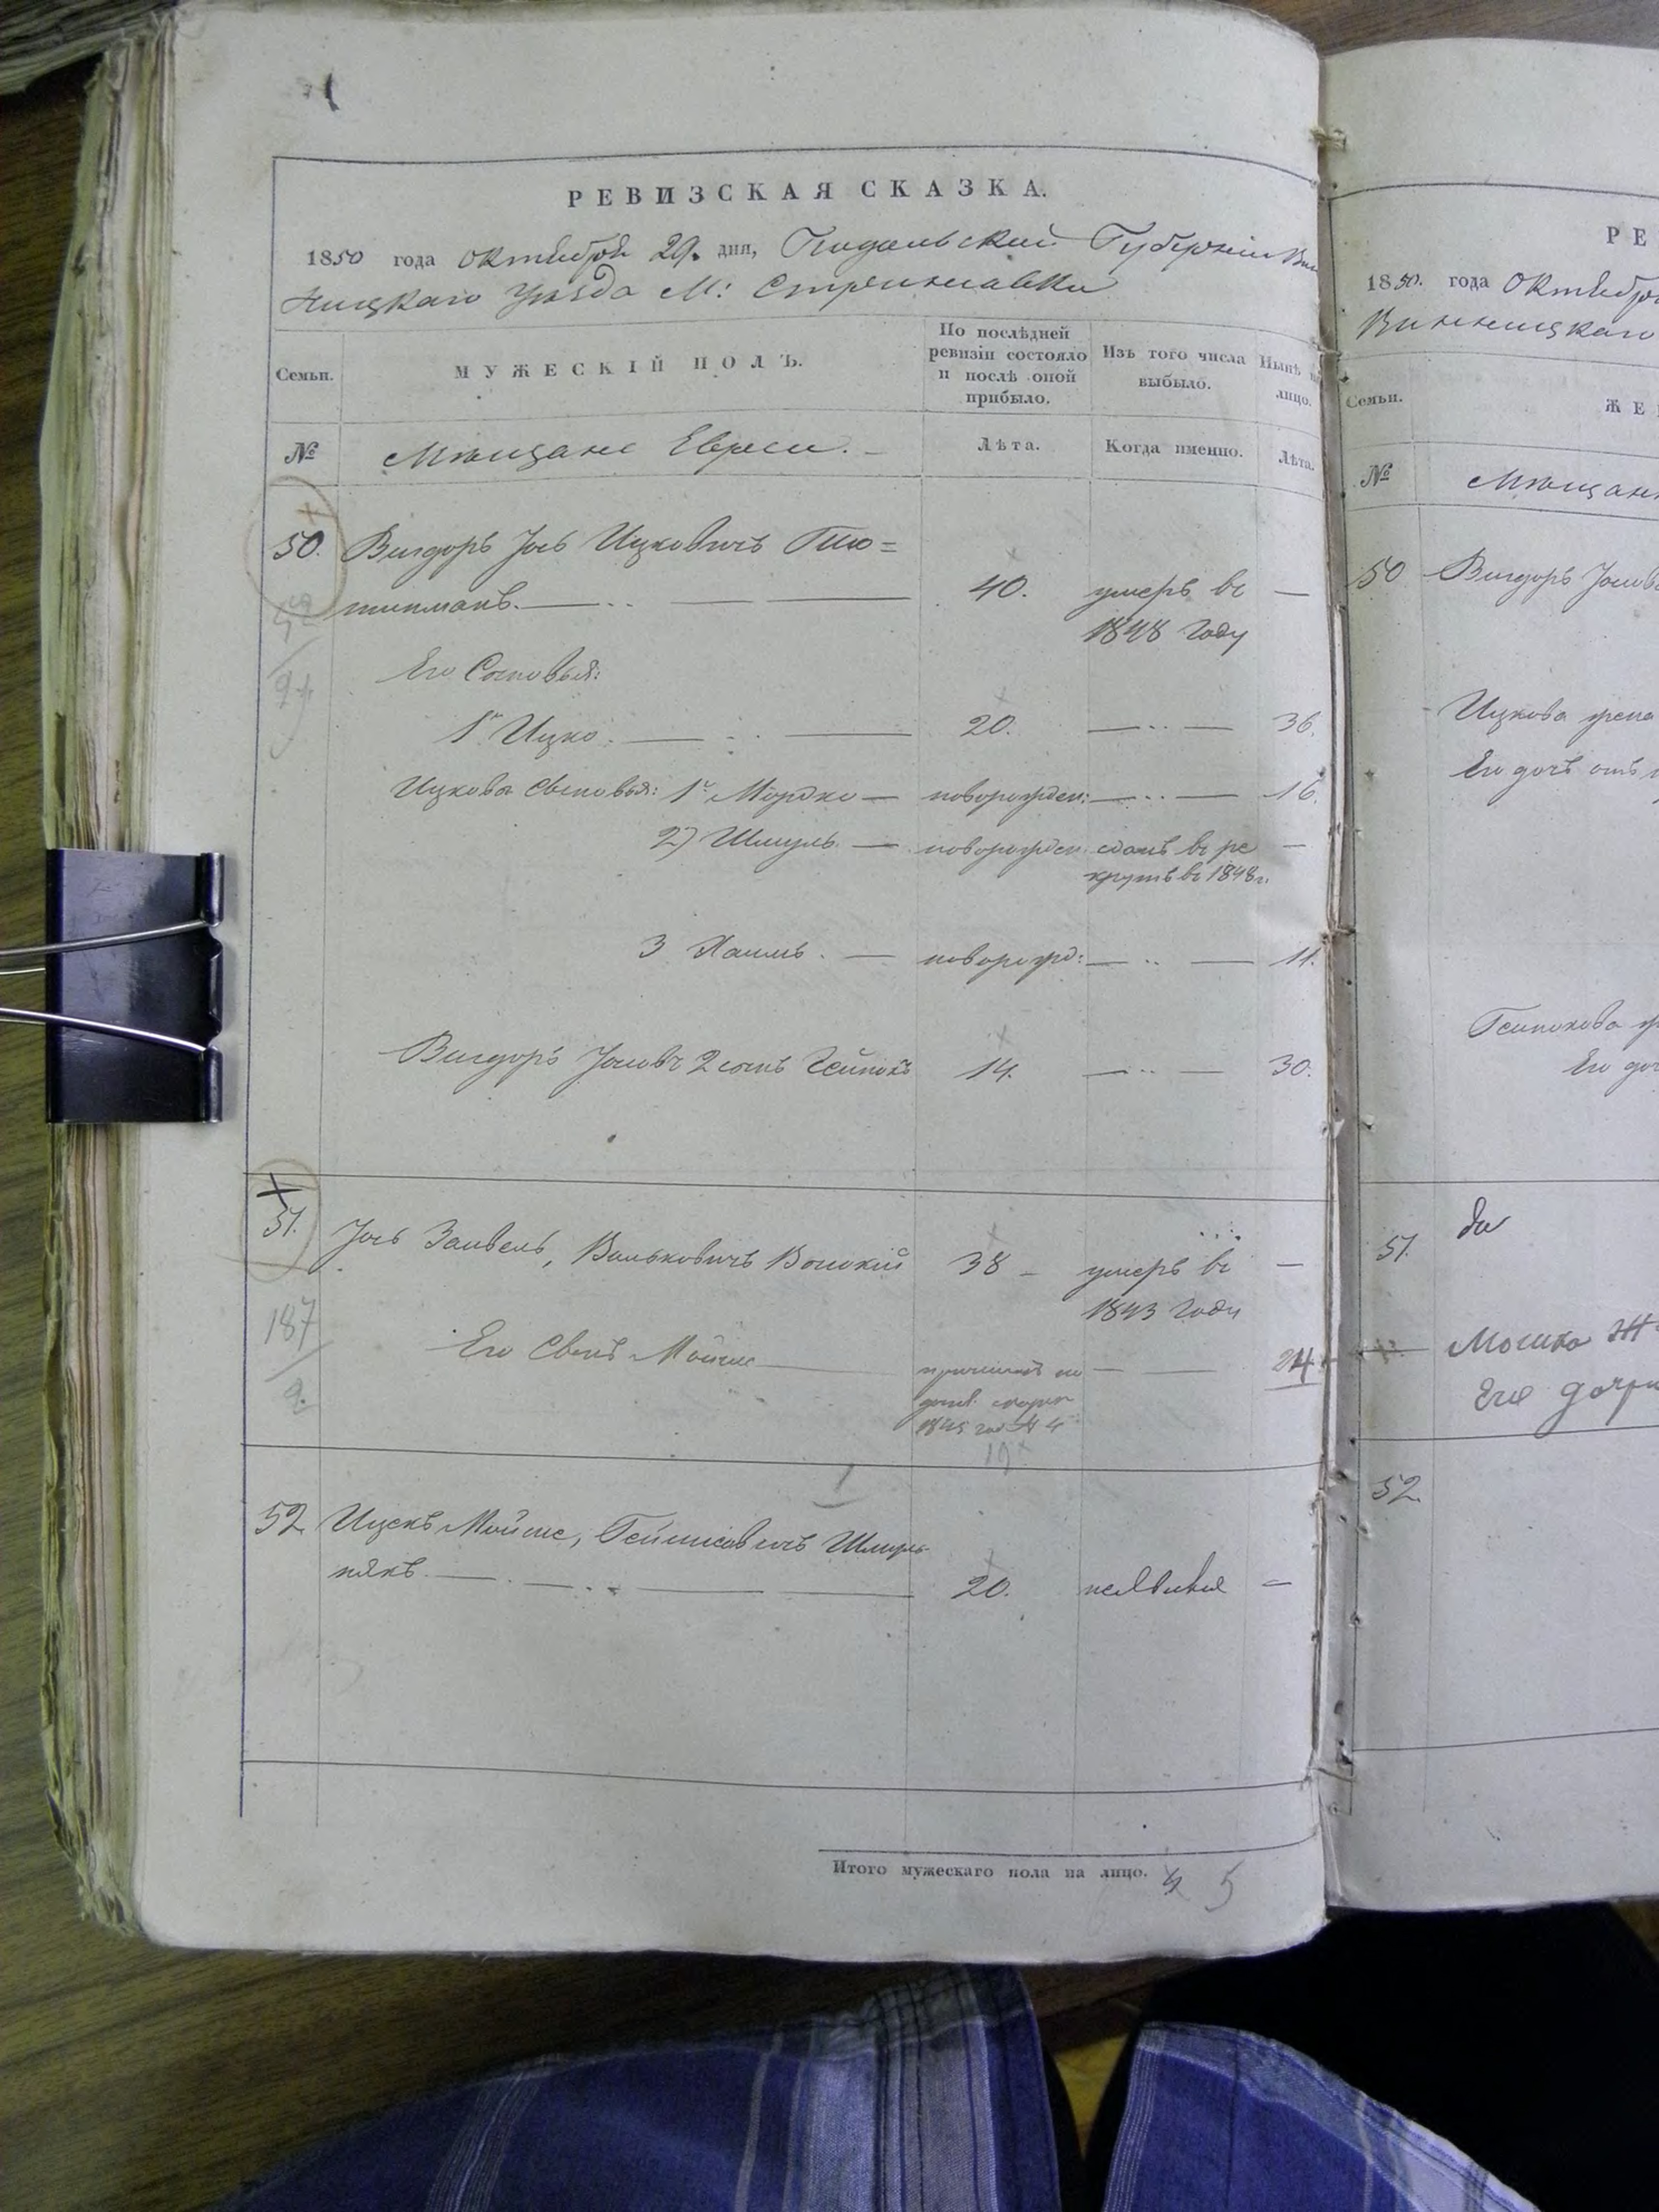 РЕВИЗСКАЯ СКАЗКА.
1850 года Октября 29. дня, Подольской Губернии Вин
ницкаго уѣзда М: Стрижавки
Семьи.
МУЖЕСКІЙ ПОЛЪ.
По послѣдней
ревизіи состояло
и послѣ оной
прибыло.
Изъ того числа
выбыло.
Нынѣ на
лицо.
№
Мѣщане Евреи.
Лѣта.
Когда именно.
Лѣта.
50. Вигдоръ Іось Ицковичъ
40. умеръ въ —
1848 году
Его Сыновья:
1й Ицко. 20. — 36.
Ицкова Сыновья: 1й Мордко — новорожден: — 16.
2) Шмуль — новорожден. сданъ въ ре —
круты въ 1848 г.
3 Хаимъ. — новорожд: — 11.
Вигдоръ Іосовъ 2 сынъ 14. — 30.
51. Іось Зайвель, Вольковичъ 38 — умеръ въ —
1843 году
187
2
Его Сынъ Мойше — 24
1845 год № 4
19
52 Ицекъ Мойше,
20. неявился —
Итого мужескаго пола на лицо. 4 5
РЕ
1850. года Октября
Винницкаго
Семьи.
ЖЕ
№
Мѣщане
50 Вигдоръ Іосовъ
Ицкова жена
Его дочь отъ
Его доч
51.
Мошко
Его дочри
52